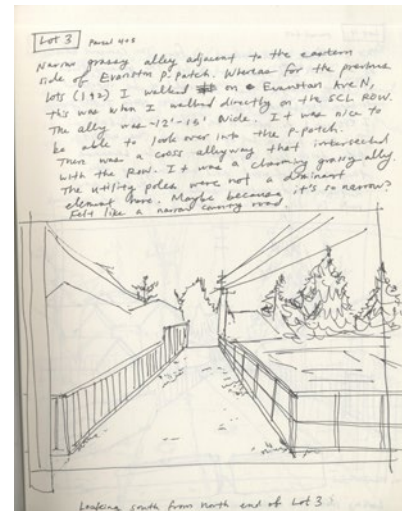 Lot 3 Parcel 403
Narrow grassy alley adjacent to the eastern
side of Evanston P. Patch. Whereas for the previous
lots (1 & 2) I walked on Evanston Ave N,
this was when I walked directly on the SCL ROW.
The alley was ~12'-16' wide. It was nice to
be able to look over into the P-patch.
There was a cross alleyway that intersected
with the Row. It was a charming grassy alley.
The utility poles were not a dominant
element here. Maybe because it's so narrow?
Felt like a narrow country road.
Looking south from north end of Lot 3